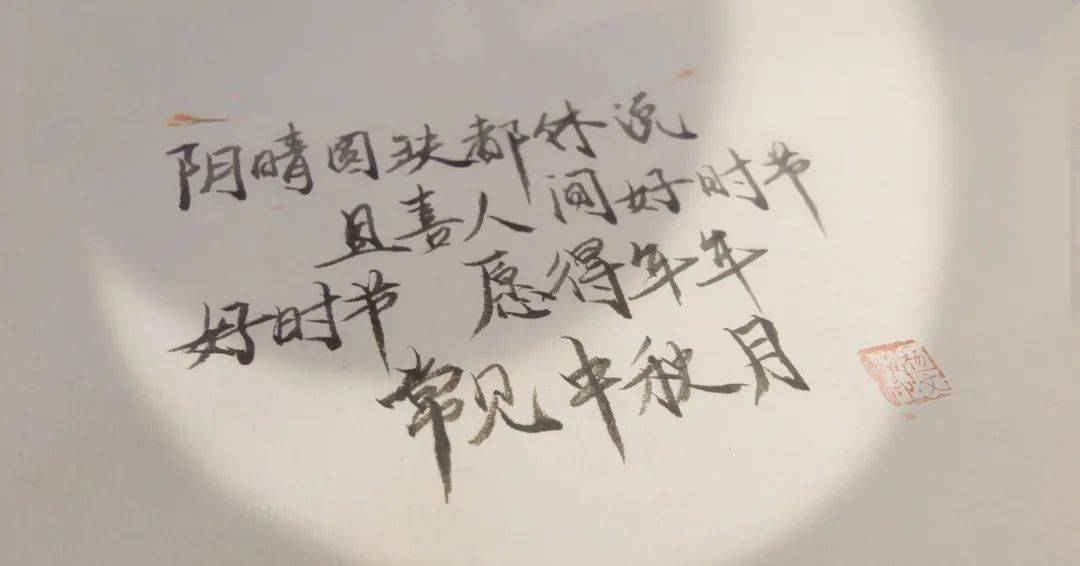 阴晴圆玦都休说
且喜人间好时节
好时节 愿得年年
常见中秋月
杨文